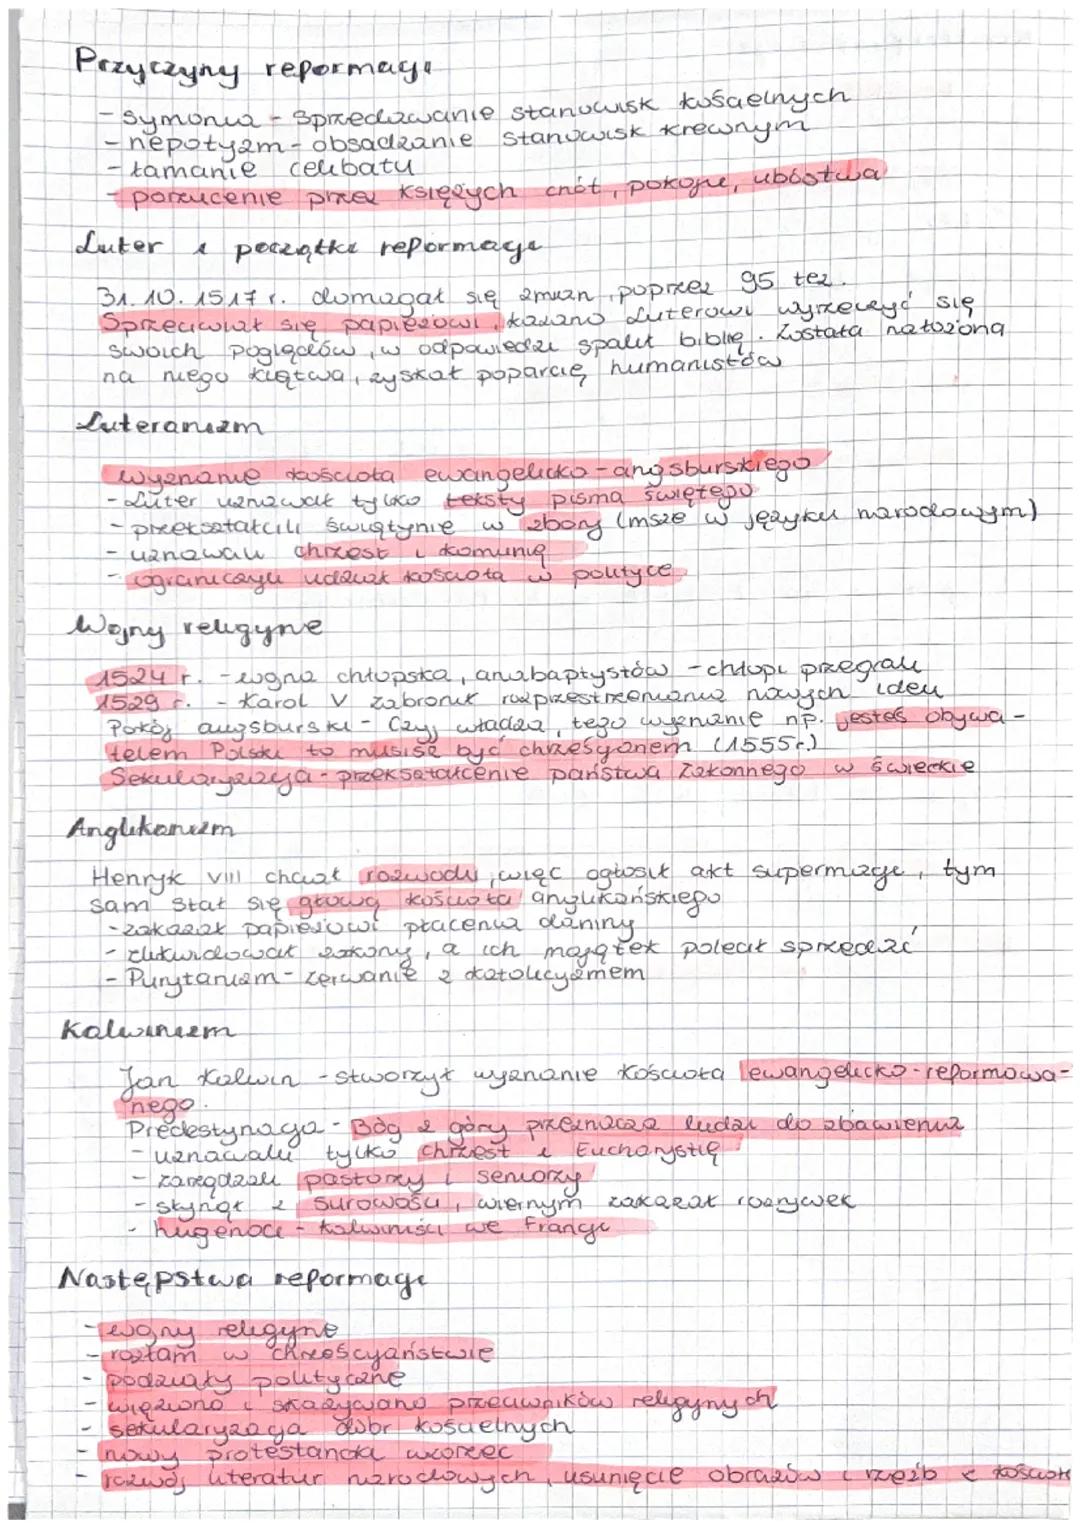 Przyczyny reformacji
- Symonia - sprzedawanie stanowisk kościelnych
- nepotyzm - obsadzanie stanowisk krewnym
- łamanie celibatu
- porzucenie przez księżych cnót, pokoju, ubóstwa
Luter i początki reformacji
31.10.1517 r. domagał się zmian, poprzez 95 tez.
Sprzeciwiał się papieżowi, kazano Luterowi wyrzeczyć się
swoich poglądów, w odpowiedzi spalił biblię. Została nałożona
na niego klątwa, zyskał poparcię humanistów
Luteranizm
Wyznanie kościoła ewangelicko-angsburskiego
- Luter uznawał tylko teksty pisma świętego
- przekształcili świątynie w zbory (msze w języku narodowym)
- uznawali chrzest i komunię
- ograniczyli udział kościoła w polityce
Wojny religijne
1524 r. - wojna chłopska, anabaptystów - chłopi przegrali
1529 r. - Karol V zabronił rozprzestrzeniania nowych idei
Pokój augsburski - Czyj władza, tego wyznanie np. jesteś obywa-
telem Polski to musisz być chrześcijanem (1555r.)
Sekularyzacja - przekształcenie państwa zakonnego w świeckie
Anglikanizm
Henryk VIII chciał rozwodu, więc ogłosił akt supermacji, tym
sam stał się głową kościoła anglikańskiego
- zakazał papieżowi płacenia daniny
- zlikwidował zakony, a ich majątek polecił sprzedać
- Purytanizm - zerwanie z katolicyzmem
Kalwinizm
Jan Kalwin - stworzył wyznanie kościoła ewangelicko-reformowa-
nego.
Predestynacja - Bóg z góry przeznacza ludzi do zbawienia
- uznawali tylko chrzest i Eucharystię
- zarządzali pastorzy i seniorzy
- słynął z surowości, wiernym zakazał rozrywek
- hugenoci - kalwiniści we Francji
Następstwa reformacji
- wojny religijne
- rozłam w chrześcijaństwie
- podziały polityczne
- więziono i skazywano przeciwników religijnych
- sekularyzacja dóbr kościelnych
- nowy protestancki wzorzec
- rozwój literatur narodowych, usunięcie obrazów i rzeźb z kościoł